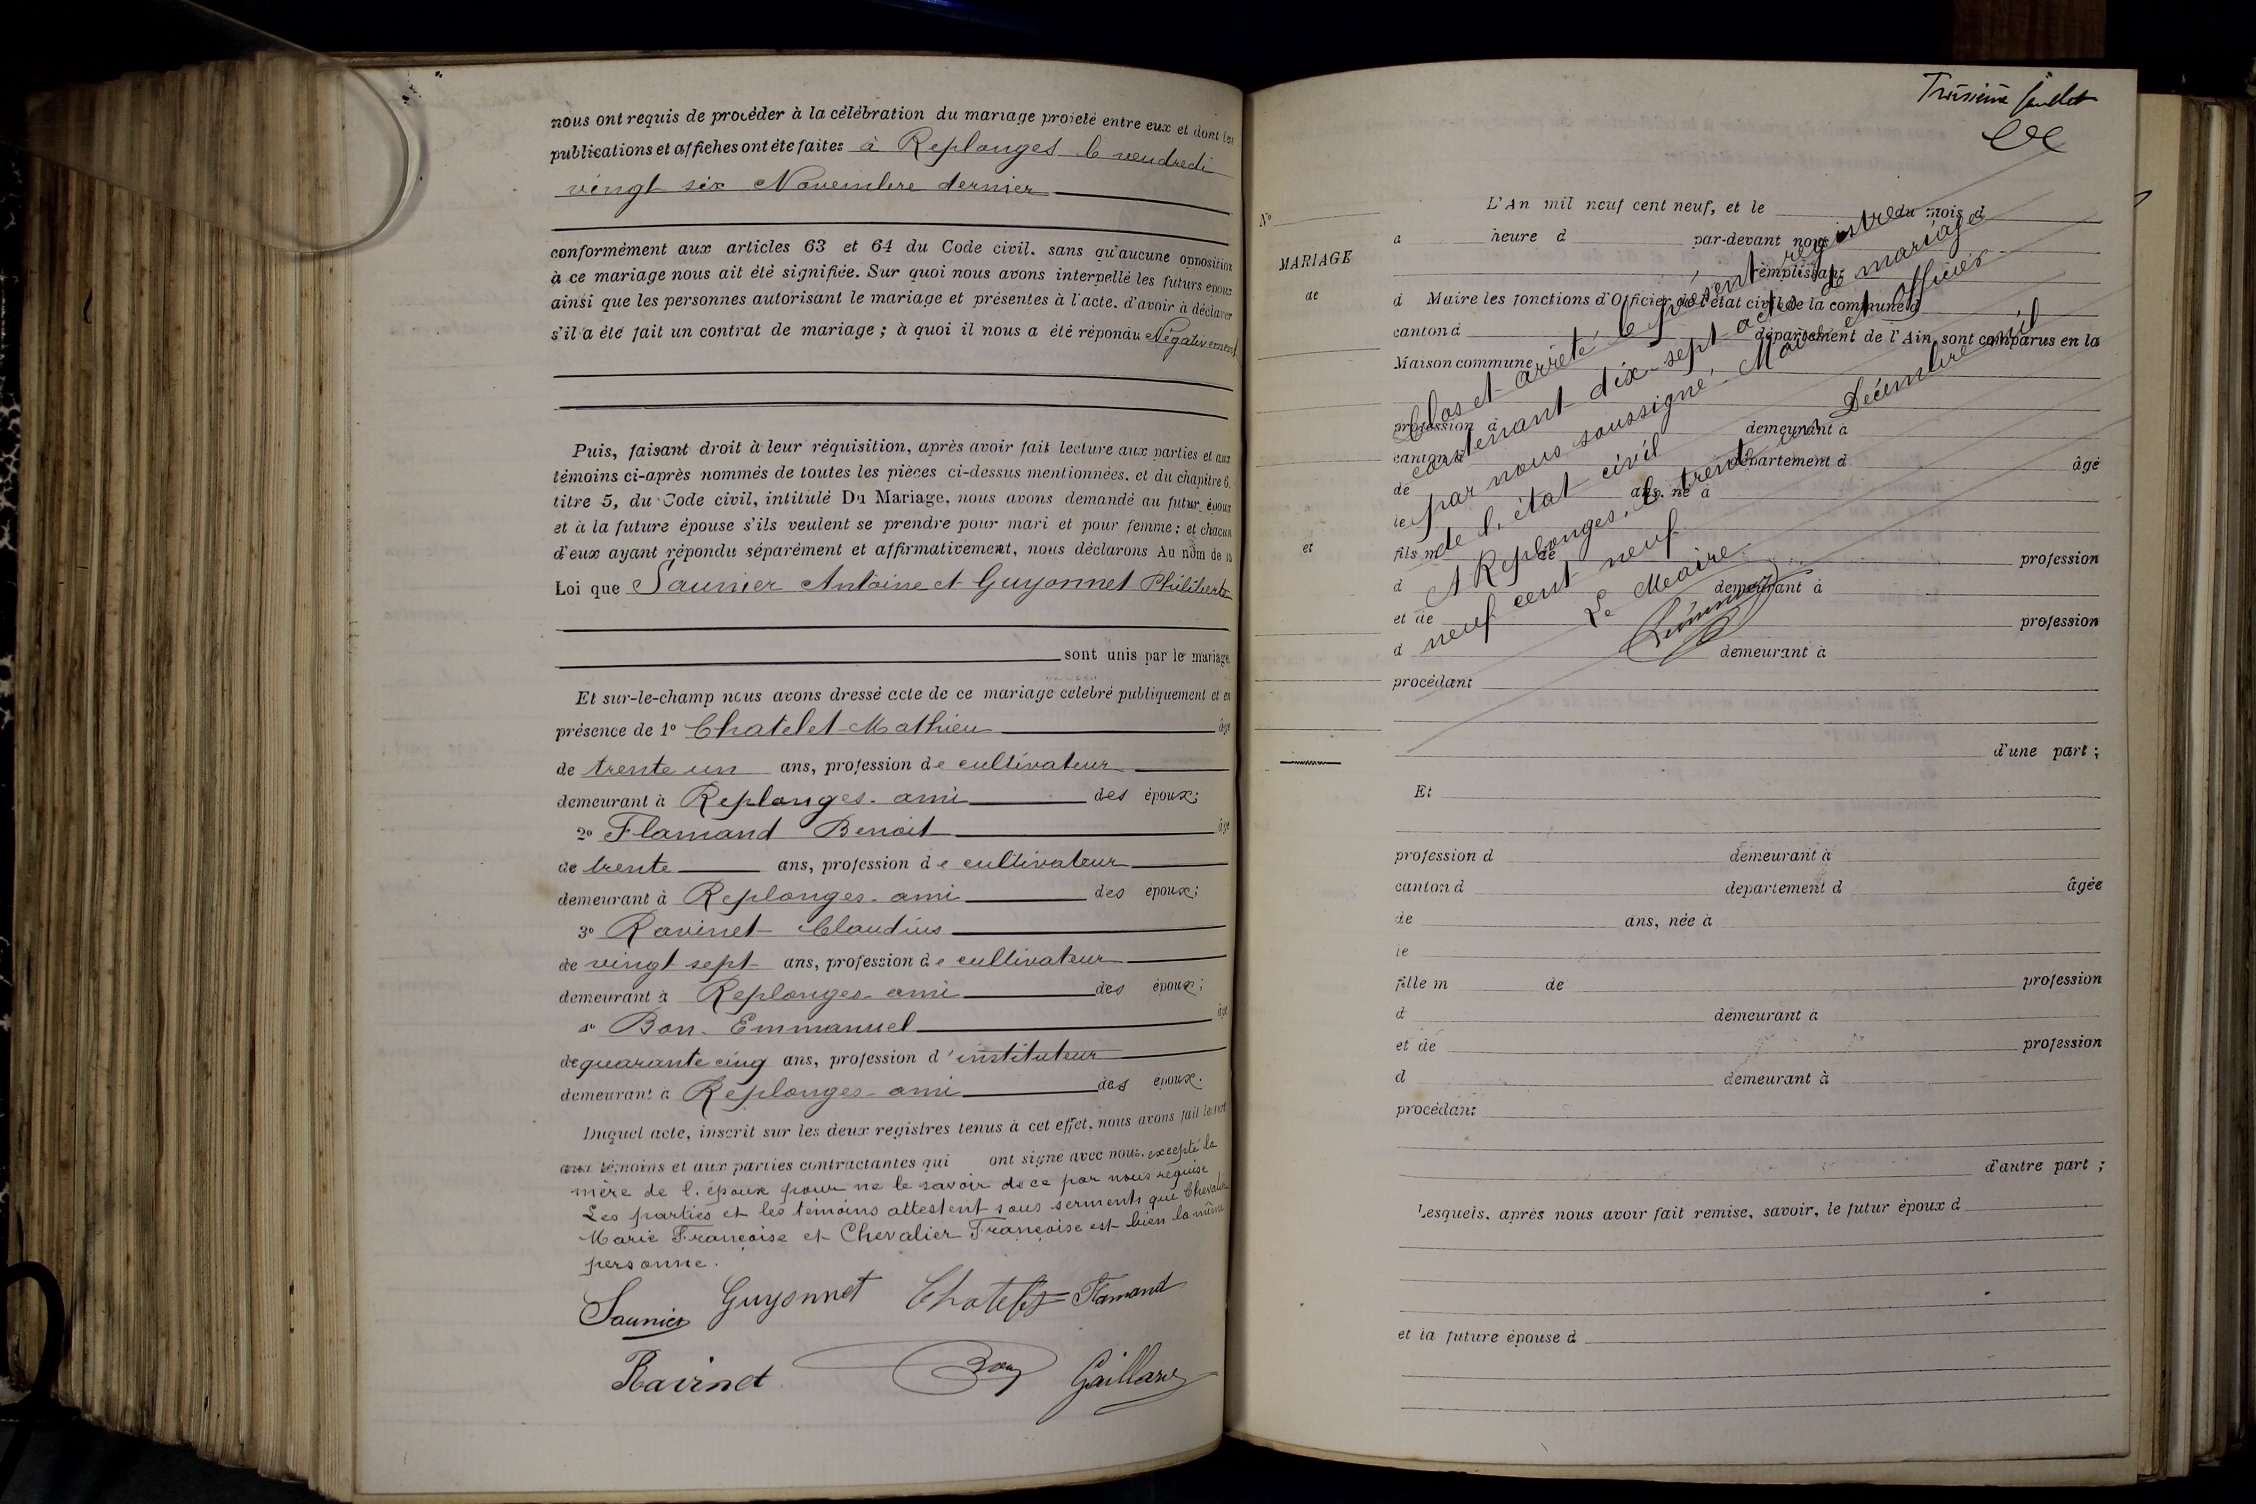 nous ont requis de procéder à la célébration du mariage projeté entre eux et dont les
publications et affiches ont été faites à Replonges le vendredi
vingt six Novembre dernier
conformément aux articles 63 et 64 du Code civil. sans qu'aucune opposition
à ce mariage nous ait été signifiée. Sur quoi nous avons interpellé les futurs époux
ainsi que les personnes autorisant le mariage et présentes à l'acte. d'avoir à déclarer
s'il a été fait un contrat de mariage ; à quoi il nous a été répondu Négativement
Puis, faisant droit à leur réquisition, après avoir fait lecture aux parties et aux
témoins ci-après nommés de toutes les pièces ci-dessus mentionnées. et du chapitre 6.
titre 5, du Code civil, intitulé Du Mariage, nous avons demandé au futur époux
et à la future épouse s'ils veulent se prendre pour mari et pour femme ; et chacun
d'eux ayant répondu séparément et affirmativement, nous déclarons Au nom de la
Loi que Saunier Antoine et Guyonnet Philiberte
sont unis par le mariage
Et sur-le-champ nous avons dressé acte de ce mariage célébré publiquement et en
présence de 1° Chatelet Mathieu âgé
de trente un ans, profession de cultivateur
demeurant à Replonges. ami des époux;
2° Flamand Benoit âgé
de trente ans, profession de cultivateur
demeurant à Replonges. ami des époux;
3° Ravinet Claudius
de vingt sept ans, profession de cultivateur
demeurant à Replonges. ami des époux;
4° Bon. Emmanuel âgé
de quarante cinq ans, profession d'instituteur
demeurant à Replonges. ami des époux.
Duquel acte, inscrit sur les deux registres tenus à cet effet. nous avons fait lecture
aux témoins et aux parties contractantes qui ont signé avec nous. excepté la
mère de l'époux pour ne le savoir de ce par nous requise
Les parties et les témoins attestent sous serments que Chevalier
Marie Françoise et Chevalier Françoise est bien la même
personne.
Saunier Guyonnet Chatelet Flamand
Ravinet Bon Gaillard
Troisième feuillet
N°
MARIAGE
de
et
L'An mil neuf cent neuf, et le du mois d
a heure d par-devant nous
remplissant
d Maire les fonctions d'Officier de l'état civil de la commune d
canton d département de l'Ain, sont comparus en la
Maison commune
profession d demeurant à
canton d département d âgé
de ans, né à
le
fils m de profession
d demeurant à
et de profession
d demeurant à
procédant
d'une part ;
Clos et arrêté le présent registre
contenant dix-sept actes de mariage
par nous soussigné, Maire et officier
de l'état civil
A Replonges, le trente un Décembre mil
neuf cent neuf
Le Maire
Et
profession d demeurant à
canton d département d âgée
de ans, née à
le
fille m de profession
d demeurant à
et de profession
d demeurant à
procédant
d'autre part ;
Lesquels, après nous avoir fait remise, savoir, le futur époux d
et la future épouse d